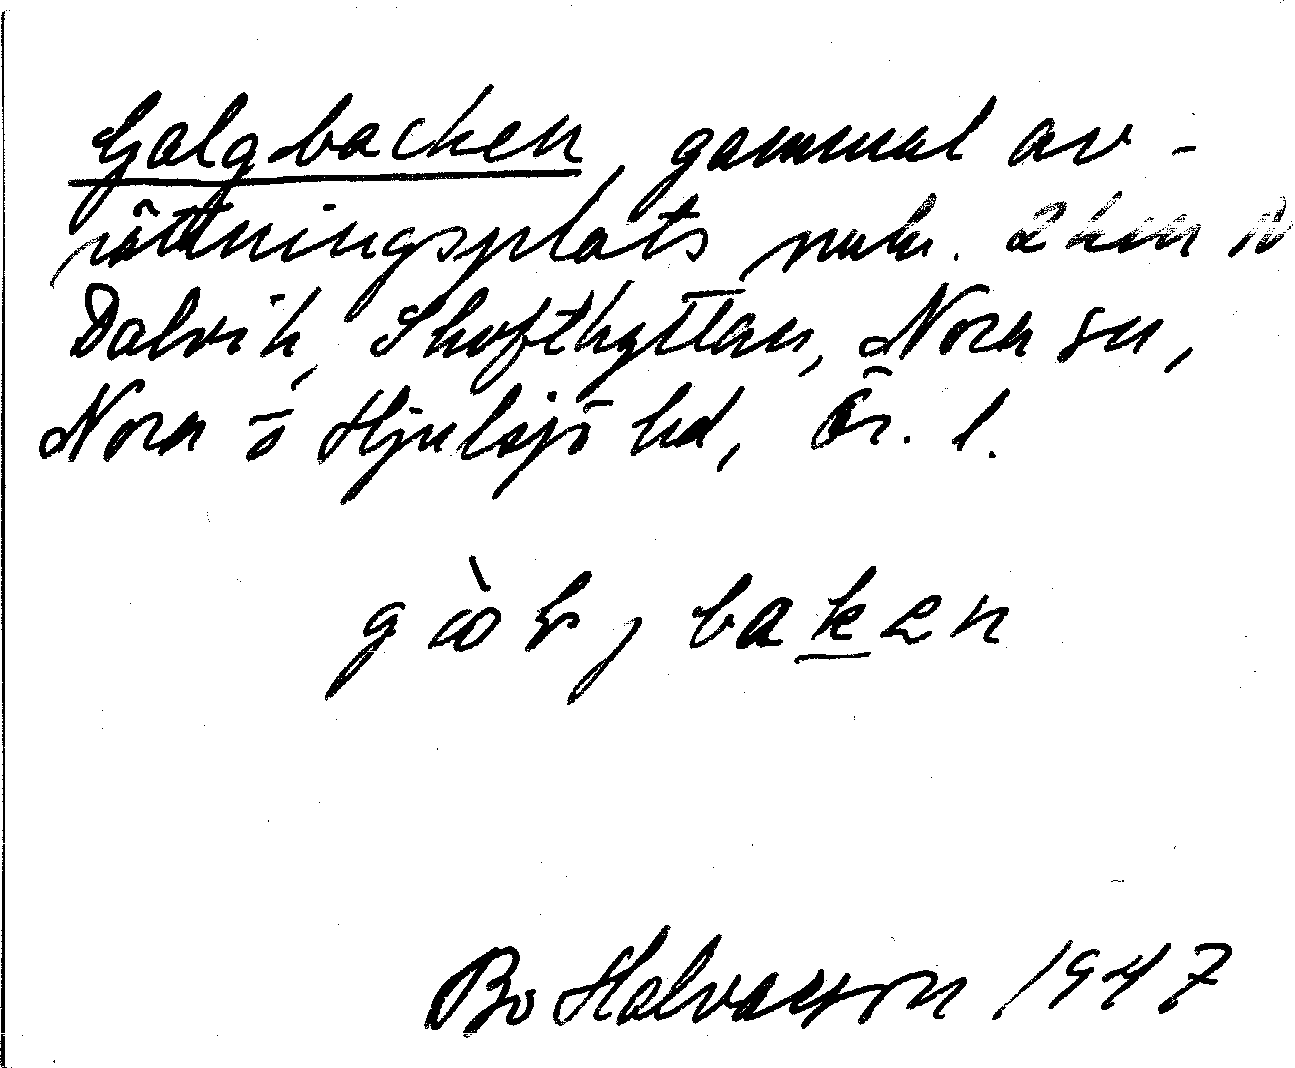 Galgbacken, gammal av-
rättningsplats nuv. 2 km N
Dalvik, Skofthyttan, Nora sn,
Nora o Hjulsjö hd, Ör. l.
baken
Bo Halvarsson 1947